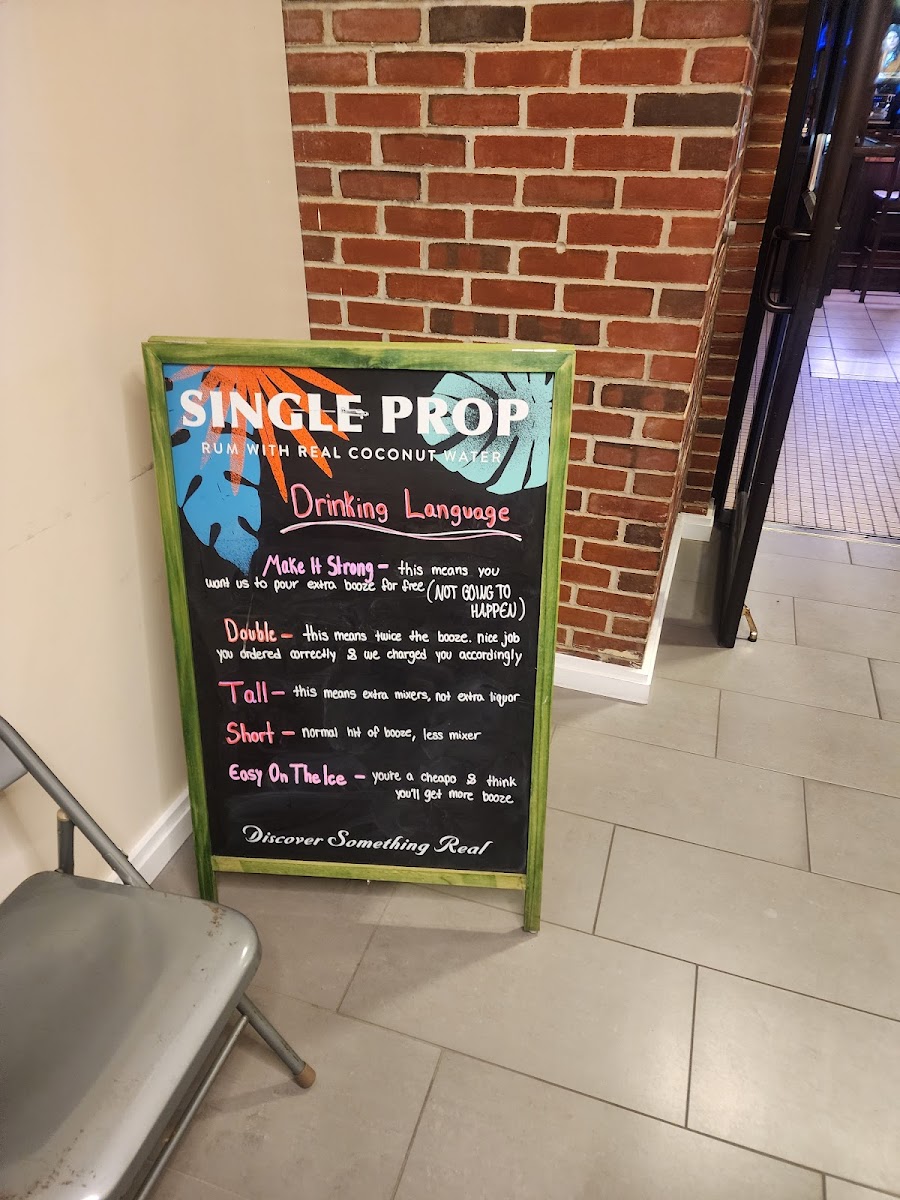 SINGLE PROP
RUM WITH REAL COCONUT WATER
Drinking Language
Make It Strong - this means you
want us to pour extra booze for free (NOT GOING TO
HAPPEN)
Double - this means twice the booze. nice job
you ordered correctly & we charged you accordingly
Tall - this means extra mixers, not extra liquor
Short - normal hit of booze, less mixer
Easy On The Ice - you're a cheapo & think
you'll get more booze
Discover Something Real